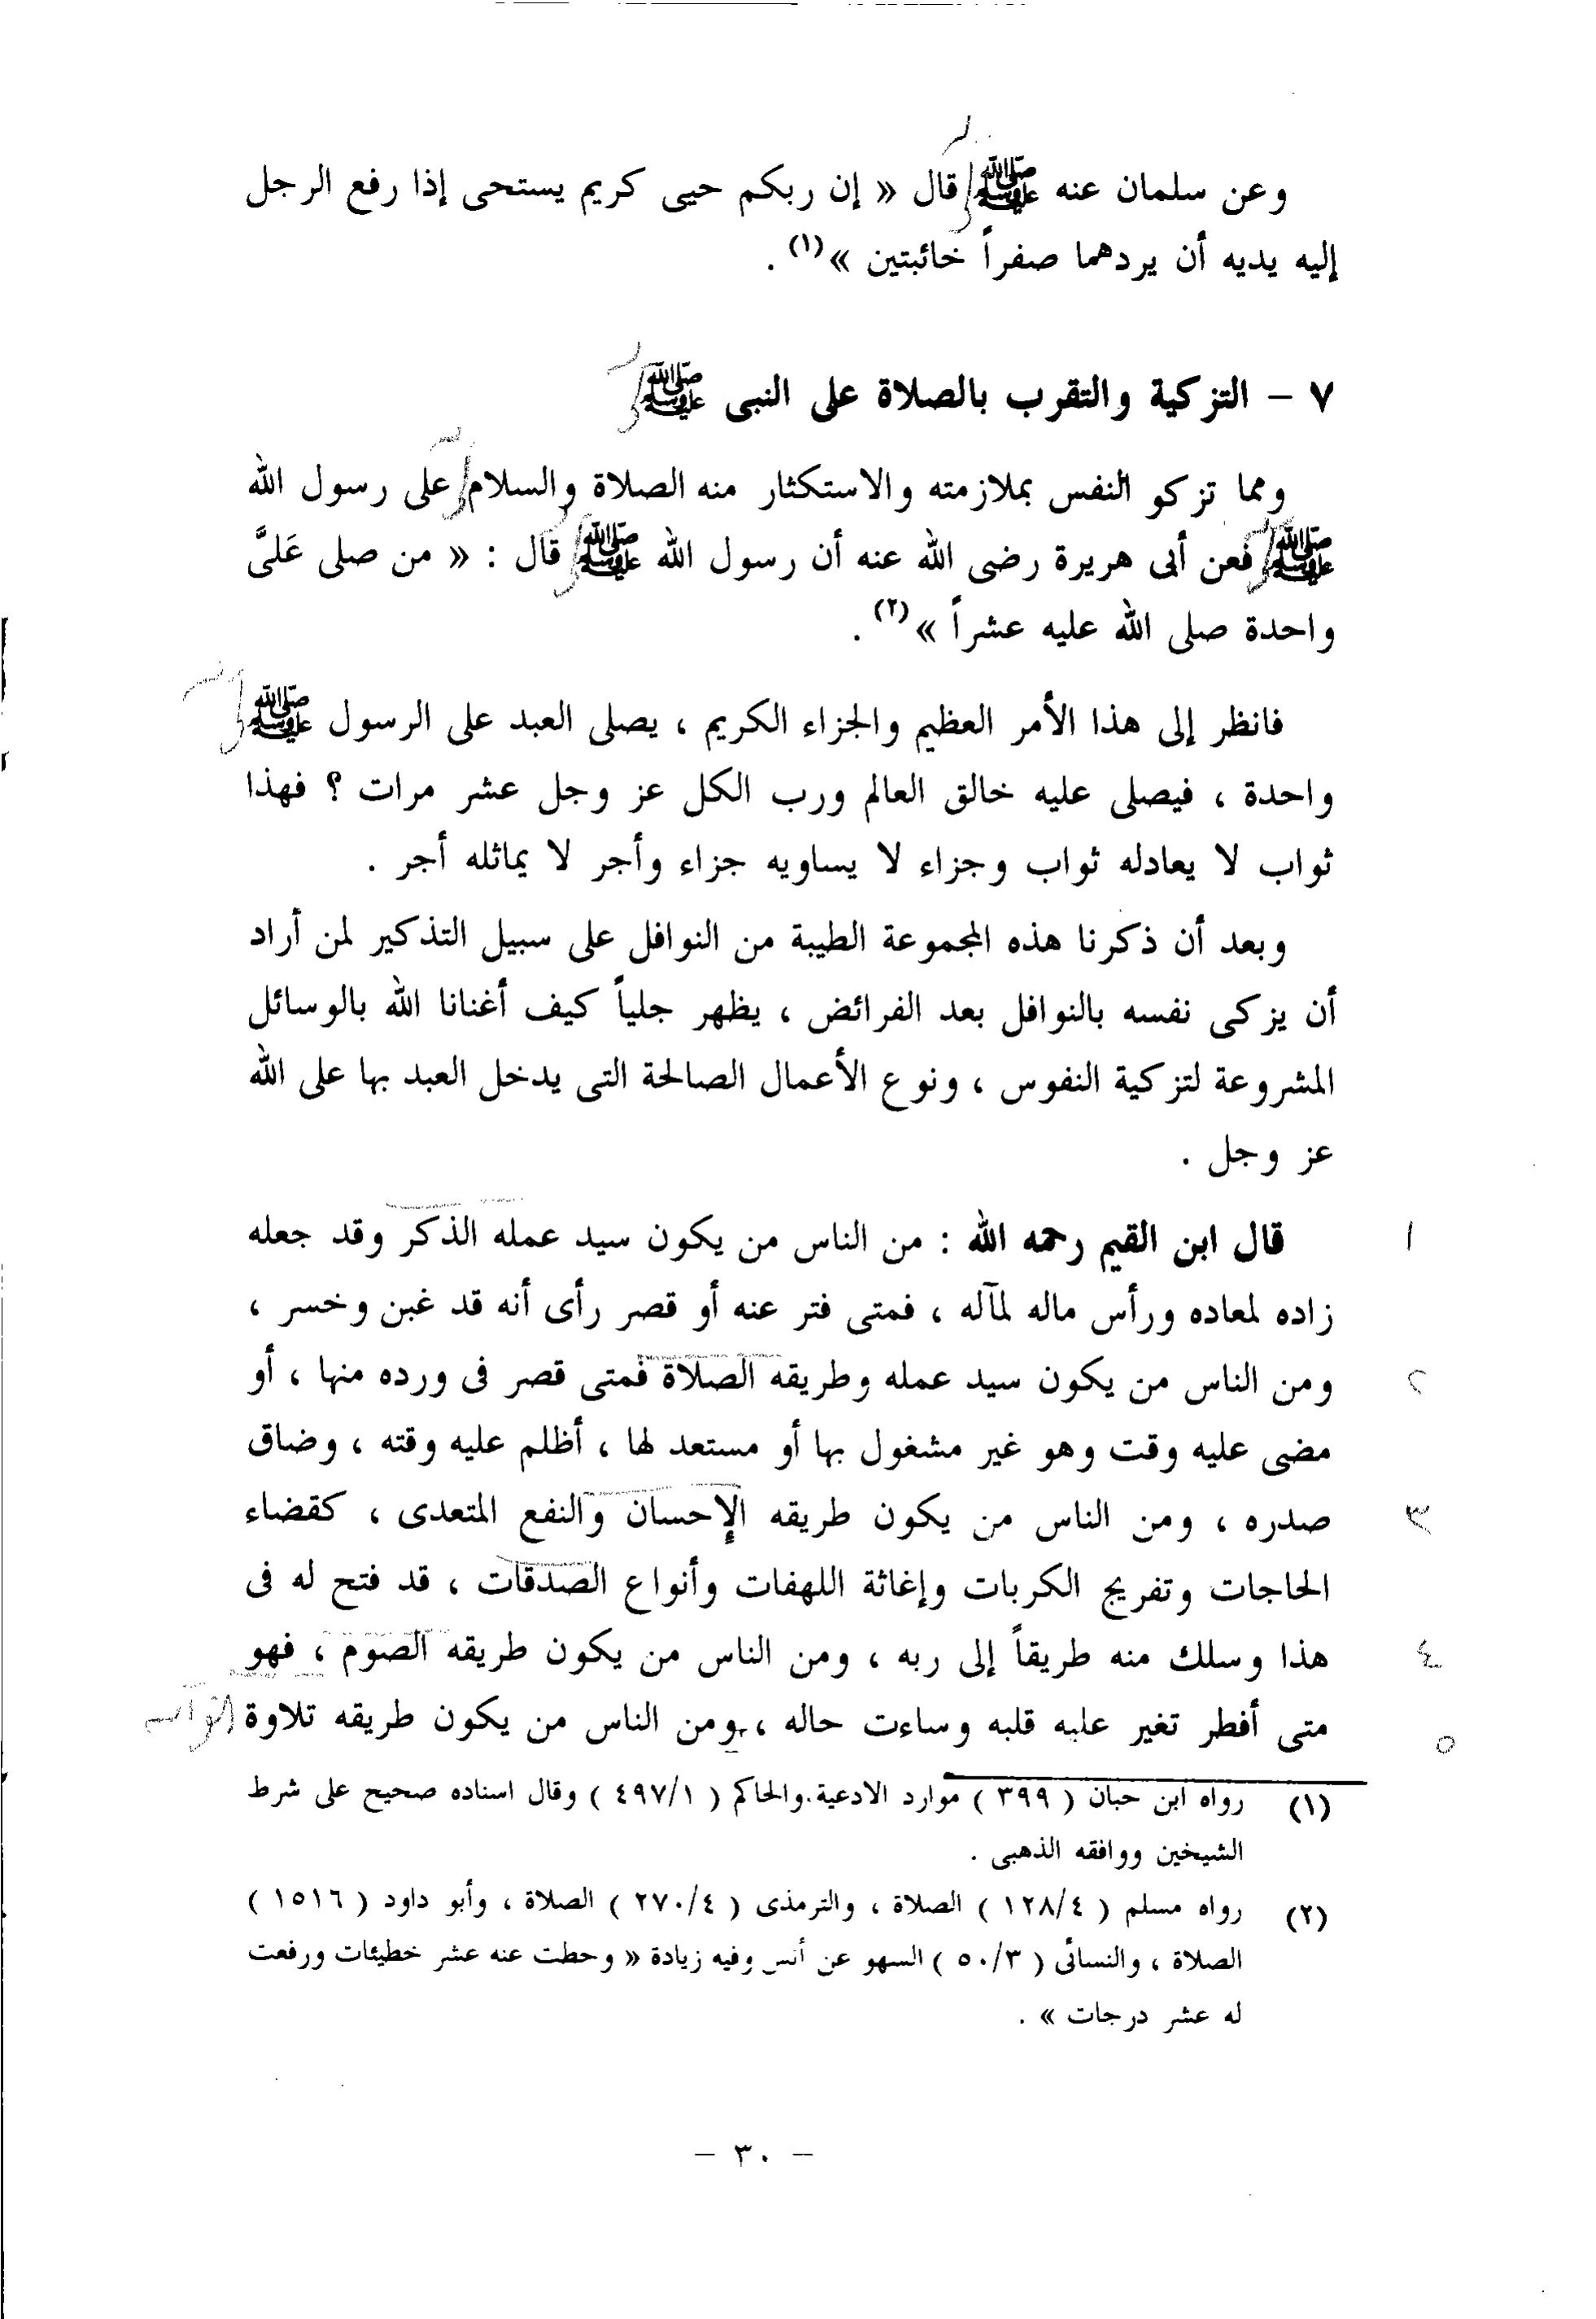 وعن سلمان عنه ﷺ قال « إن ربكم حيى كريم يستحى إذا رفع الرجل
إليه يديه أن يردهما صفراً خائبتين »(١) .
٧ – التزكية والتقرب بالصلاة على النبى ﷺ
ومما تزكو النفس بملازمته والاستكثار منه الصلاة والسلام على رسول الله
ﷺ فعن أبى هريرة رضى الله عنه أن رسول الله ﷺ قال : « من صلى عَلىَّ
واحدة صلى الله عليه عشراً »(٢) .
فانظر إلى هذا الأمر العظيم والجزاء الكريم ، يصلى العبد على الرسول ﷺ
واحدة ، فيصلى عليه خالق العالم ورب الكل عز وجل عشر مرات ؟ فهذا
ثواب لا يعادله ثواب وجزاء لا يساويه جزاء وأجر لا يماثله أجر .
وبعد أن ذكرنا هذه المجموعة الطيبة من النوافل على سبيل التذكير لمن أراد
أن يزكى نفسه بالنوافل بعد الفرائض ، يظهر جلياً كيف أغنانا الله بالوسائل
المشروعة لتزكية النفوس ، ونوع الأعمال الصالحة التى يدخل العبد بها على الله
عز وجل .
قال ابن القيم رحمه الله : من الناس من يكون سيد عمله الذكر وقد جعله
١
زاده لمعاده ورأس ماله لمآله ، فمتى فتر عنه أو قصر رأى أنه قد غبن وخسر ،
ومن الناس من يكون سيد عمله وطريقه الصلاة فمتى قصر فى ورده منها ، أو
٢
مضى عليه وقت وهو غير مشغول بها أو مستعد لها ، أظلم عليه وقته ، وضاق
صدره ، ومن الناس من يكون طريقه الإحسان والنفع المتعدى ، كقضاء
٣
الحاجات وتفريج الكربات وإغاثة اللهفات وأنواع الصدقات ، قد فتح له فى
هذا وسلك منه طريقاً إلى ربه ، ومن الناس من يكون طريقه الصوم ، فهو
٤
متى أفطر تغير عليه قلبه وساءت حاله ، ومن الناس من يكون طريقه تلاوة
٥
القرآن
(١) رواه ابن حبان ( ٣٩٩ ) موارد الادعية.والحاكم ( ٤٩٧/١ ) وقال اسناده صحيح على شرط
الشيخين ووافقه الذهبى .
(٢) رواه مسلم ( ١٢٨/٤ ) الصلاة ، والترمذى ( ٢٧٠/٤ ) الصلاة ، وأبو داود ( ١٥١٦ )
الصلاة ، والنسائى ( ٥٠/٣ ) السهو عن أنس وفيه زيادة « وحطت عنه عشر خطيئات ورفعت
له عشر درجات » .
– ٣٠ –